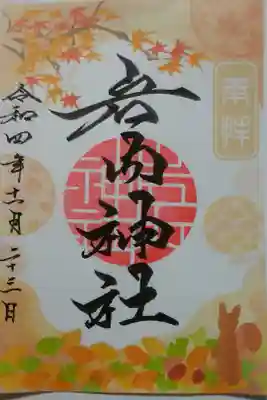 奉拝
岩内神社
令和四年十一月二十三日